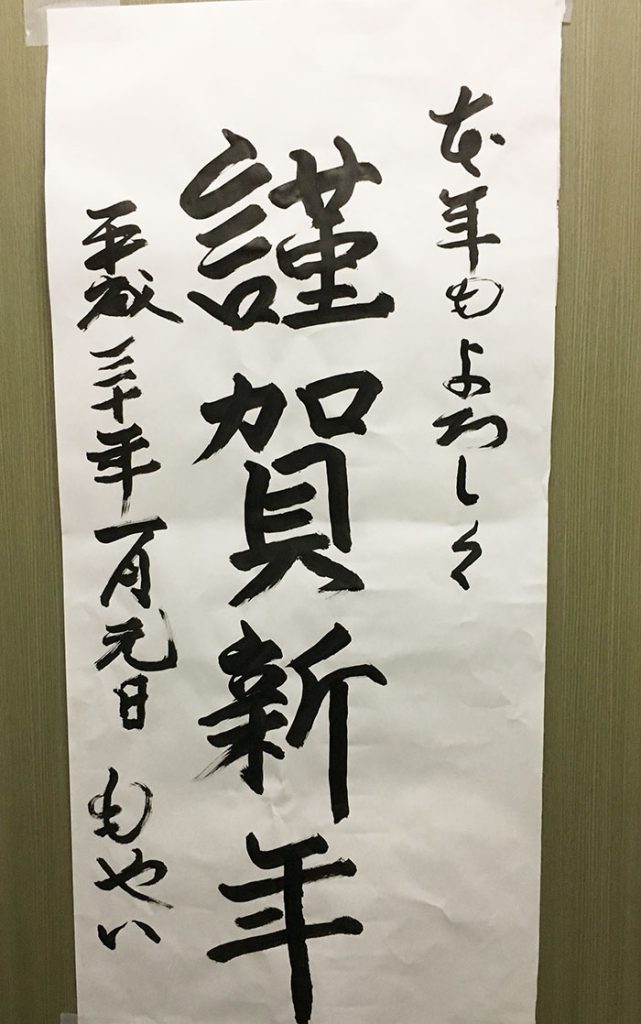 本年もよろしく
謹賀新年
平成三十年一月元日 もやい